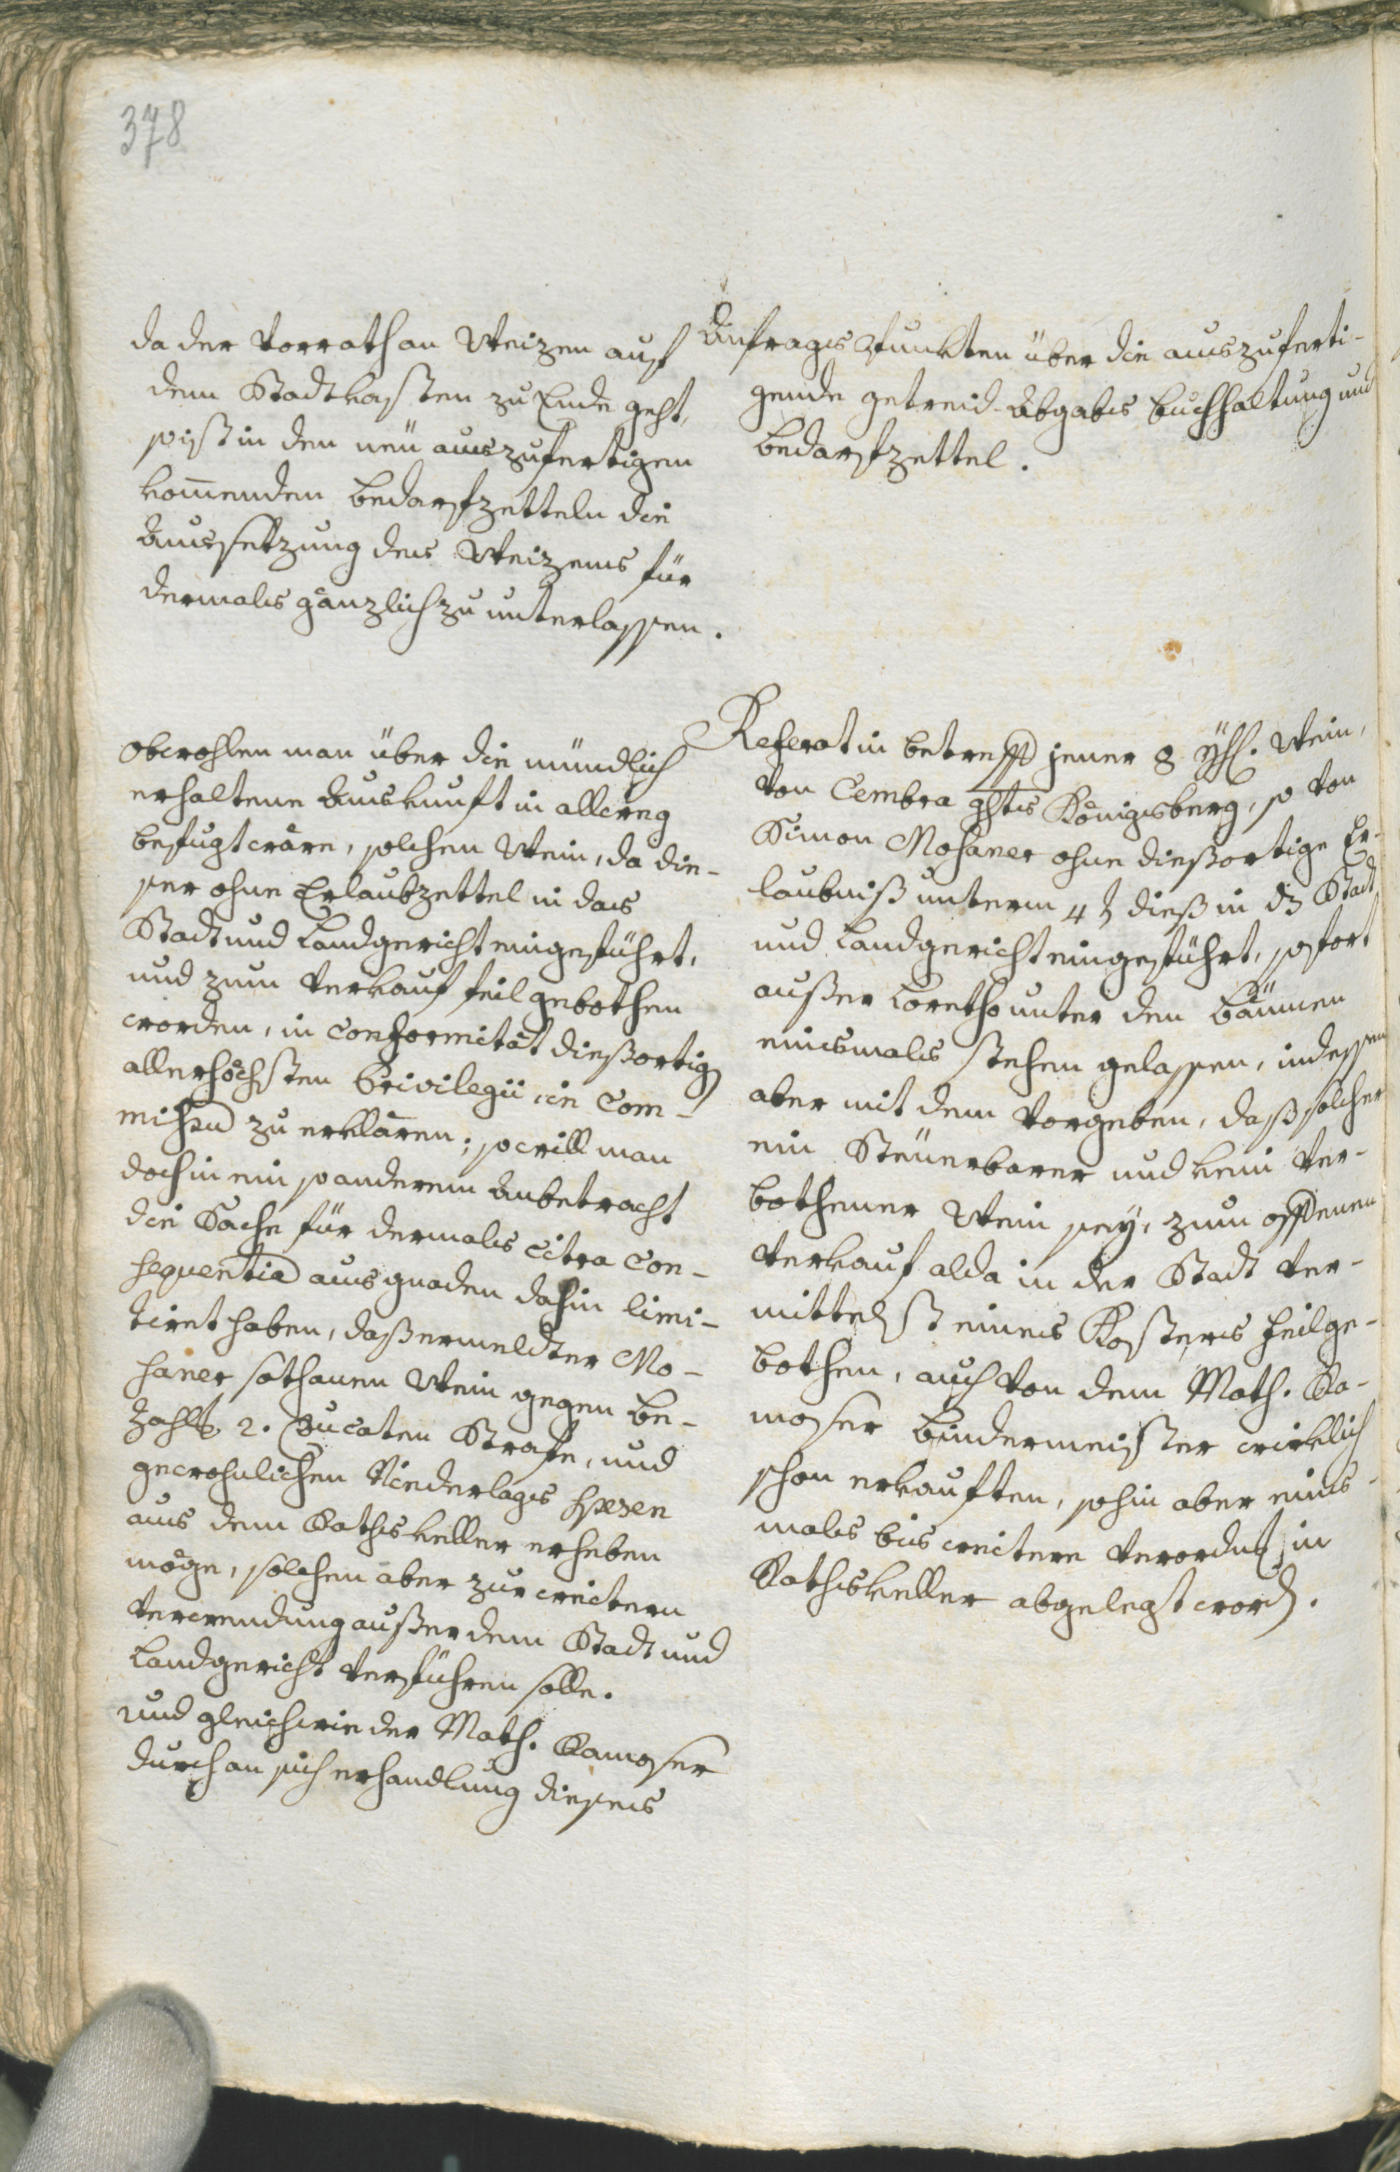 378
da der Vorrath an Weizen auf
dem Stadtkasten zu Ende geht,
so ist in den neu auszufertigen
kom̅enden bedarfzetteln die
Aussetzung des Weizens für
dermals gänzlich zu unterlassen.
Anfrags Punkten über die auszuferti-
gende getreid-Abgabs buchhaltung und
bedarfzettel.
obwohlen man über die mündlich
erhaltene Auskunft in allweg
befugt wäre, solchen Wein, da die-
ser ohne Erlaubzettel in das
Stadt und Landgericht eingeführt,
und zum Verkauf feil gebothen
worden, in Conformität diessortig
allerhöchsten Privilegii, in Com-
missum zu erklären; so will man
doch in ein so anderem Anbetracht
die Sache für dermals citra Con-
sequentia aus gnaden dahin limi-
tiret haben, daß ermeldter Mo-
saner sothanen Wein gegen be-
zahlg 2. Ducaten Strafe, und
gewohnlichen Niederlags spesen
aus dem Rathskeller erheben
möge, solchen aber zur weitern
Verwendung außer dem Stadt und
Landgericht verführen solle.
und gleichwie der Math. Ramoser
durch an sich erhandlung dieses
Referat in betreff jener 8 Yhl. Wein,
von Cembra ghts Königsberg, so von
Simon Mosaner ohne diessortige Er-
laubniß unterm 4t dieß in dz Stadt
und Landgericht eingeführt, sofort
außer Loretho unter den bäumen
einsmals stehen gelassen, indessen
aber mit dem Vorgeben, daß solcher
ein Steuerbarer und kein Ver-
bothener Wein sey, zum offenen
Verkauf alda in der Stadt ver-
mittelst eines Kosters feilge-
bothen, auch von dem Math. Ra-
moser bindermeister wirklich
schon erkauften, sohin aber eins-
mals bis weitere Verordnug in
Rathskeller abgelegt word.